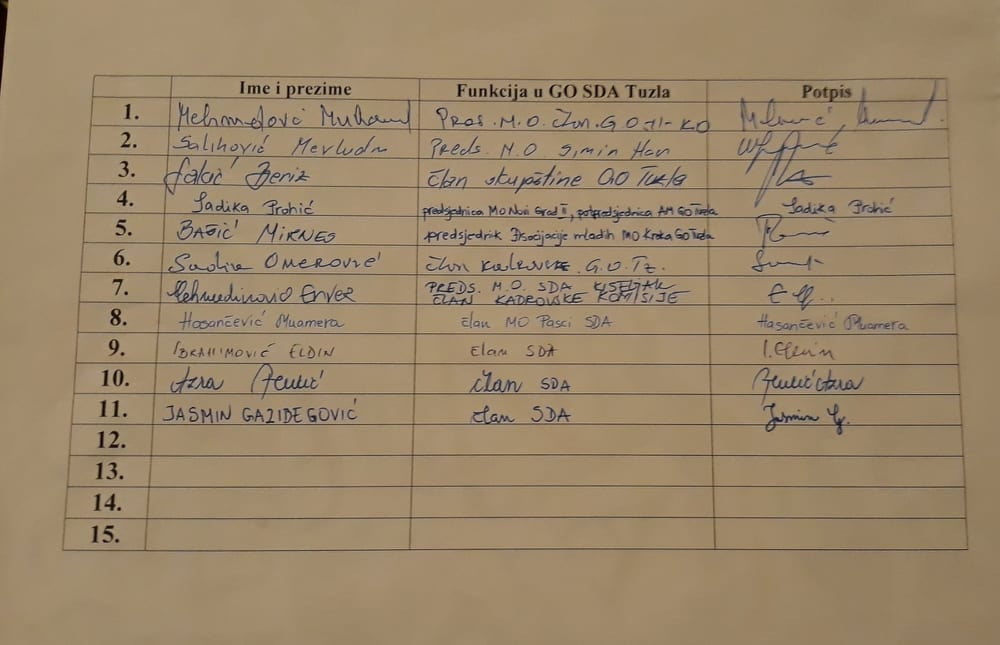 Ime i prezime Funkcija u GO SDA Tuzla Potpis
1. Mehmedović Muhamed
2. Salihović Mevludin Preds. M.O Simin Han
3. član skupštine GO Tuzla
4. Sadika Prohić predsjednica MO Novi Grad II, potpredsjednica AM GO Tuzla Sadika Prohić
5. BAŠIĆ MIRNES predsjednik Asocijacije mladih MO Kreka GO Tuzla
6. OMEROVIĆ član G.O.Tz.
7. Mehmedinović Enver PREDS. M.O. SDA KISELJAK
ČLAN KADROVSKE KOMISIJE
8. Hasančević Muamera član MO Pasci SDA Hasančević Muamera
9. IBRAHIMOVIĆ ELDIN član SDA
10. Azra član SDA Azra
11. JASMIN GAZIDEGOVIĆ član SDA Jasmin G.
12.
13.
14.
15.